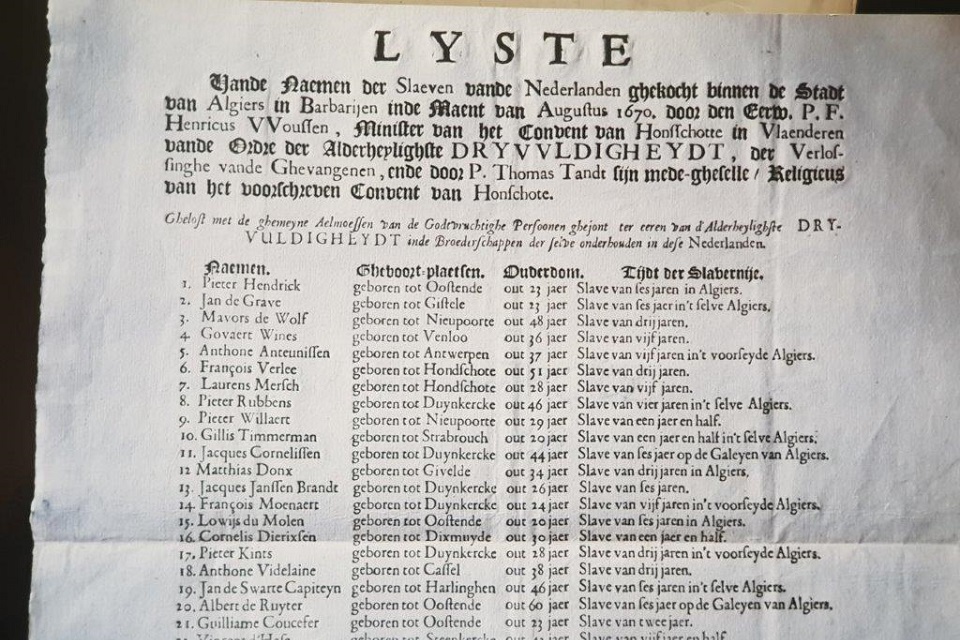 LYSTE
Vande Naemen der Slaeven vande Nederlanden ghekocht binnen de Stadt
van Algiers in Barbarijen inde Maent van Augustus 1670. door den Eerw. P. F.
Henricus VVoussen, Minister van het Convent van Honsschotte in Vlaenderen
vande Ordre der Alderheylighste DRYVVLDIGHEYDT, der Verlos-
singhe vande Ghevangenen, ende door P. Thomas Tandt sijn mede-gheselle / Religieus
van het voorschreven Convent van Honschote.
Ghelost met de ghemeyne Aelmoessen van de Godtvruchtighe Persoonen ghejont ter eeren van d'Alderheylighste DRY-
VULDIGHEYDT inde Broederschappen der selve onderhouden in dese Nederlanden.
Naemen. Gheboort-plaetsen. Ouderdom. Tijdt der Slabernije.
1. Pieter Hendrick geboren tot Oostende out 23 jaer Slave van ses jaren in Algiers.
2. Jan de Grave geboren tot Gistele out 23 jaer Slave van ses jaer in't selve Algiers,
3. Mavors de Wolf geboren tot Nieupoorte out 48 jaer Slave van drij jaren,
4. Govaert Wines geboren tot Venloo out 36 jaer Slave van vijf jaren.
5. Anthone Anteunissen geboren tot Antwerpen out 37 jaer Slave van vijf jaren in't voorseyde Algiers.
6. François Verlee geboren tot Hondschote out 51 jaer Slave van drij jaren.
7. Laurens Mersch geboren tot Hondschote out 28 jaer Slave van vijf jaren.
8. Pieter Rubbens geboren tot Duynkercke out 46 jaer Slave van vier jaren in't selve Algiers.
9. Pieter Willaert geboren tot Nieupoorte out 29 jaer Slave van een jaer en half.
10. Gillis Timmerman geboren tot Strabrouch out 20 jaer Slave van een jaer en half in't selve Algiers,
11. Jacques Cornelissen geboren tot Duynkercke out 44 jaer Slave van ses jaer op de Galeyen van Algiers.
12 Matthias Donx geboren tot Givelde out 34 jaer Slave van drij jaren in Algiers,
13. Jacques Janssen Brandt geboren tot Duynkercke out 26 jaer Slave van ses jaren.
14. François Moenaert geboren tot Duynkercke out 24 jaer Slave van vijf jaren in't voorseyde Algiers.
15. Lowijs du Molen geboren tot Oostende out 20 jaer Slave van ses jaren in Algiers.
16. Cornelis Dierixsen geboren tot Dixmuyde out 30 jaer Slave van een jaer en half.
17. Pieter Kints geboren tot Duynkercke out 28 jaer Slave van drij jaren in't voorseyde Algiers.
18. Anthone Videlaine geboren tot Cassel out 38 jaer Slave van drij jaren.
19. Jan de Swarte Capiteyn geboren tot Harlinghen out 46 jaer Slave van ses jaren in't selve Algiers.
20. Albert de Ruyter geboren tot Oostende out 60 jaer Slave van ses jaer op de Galeyen van Algiers.
21. Guilliame Coucefer geboren tot Oostende out 23 jaer Slave van twee jaer.